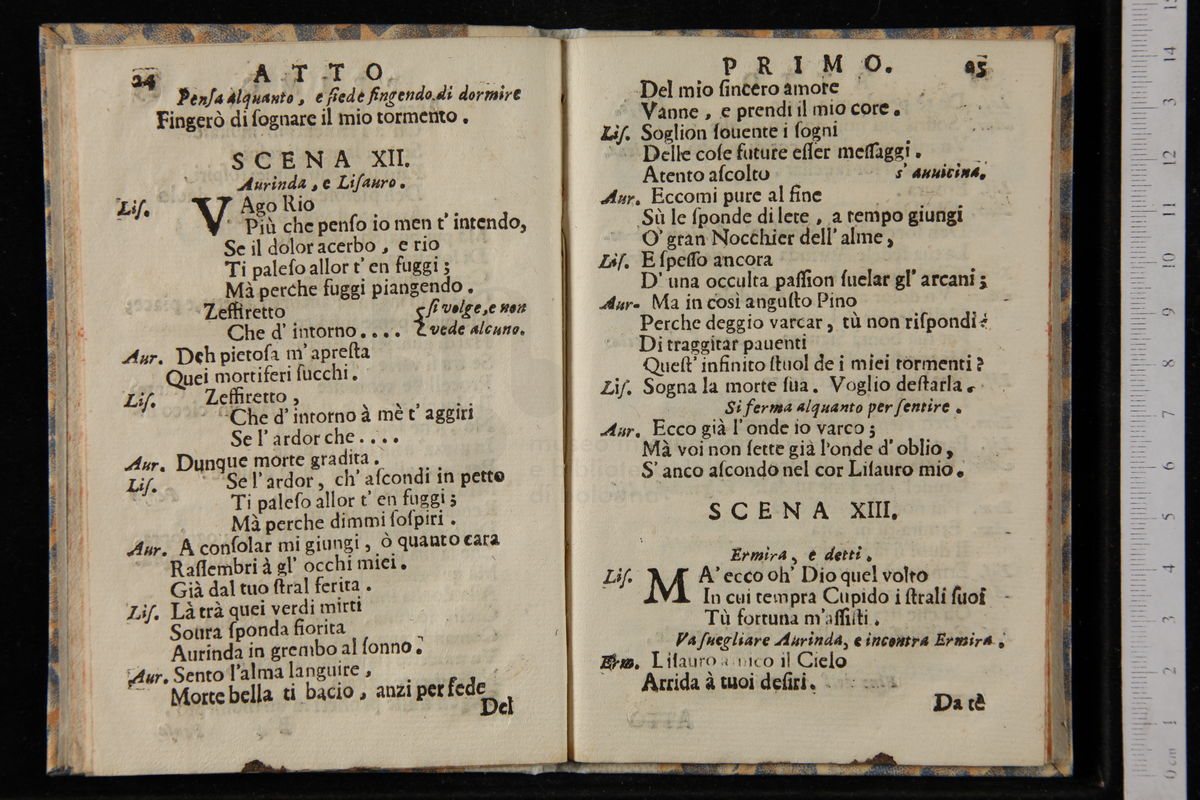 24 ATTO
Pensa alquanto, e siede fingendo di dormire
Fingerò di ſognare il mio tormento.
SCENA XII.
Aurinda, e Liſauro.
Liſ. VAgo Rio
Più che penſo io men t' intendo,
Se il dolor acerbo, e rio
Ti paleſo allor t' en fuggi;
Mà perche fuggi piangendo.
Zeffiretto {ſi volge, e non
Che d' intorno.... {vede alcuno.
Aur. Deh pietoſa m' apreſta
Quei mortiferi ſucchi.
Liſ. Zeffiretto,
Che d' intorno à mè t' aggiri
Se l' ardor che....
Aur. Dunque morte gradita.
Liſ. Se l' ardor, ch' aſcondi in petto
Ti paleſo allor t' en fuggi;
Mà perche dimmi ſoſpiri.
Aur. A conſolar mi giungi, ò quanto cara
Raſſembri à gl' occhi miei.
Già dal tuo ſtral ferita.
Liſ. Là trà quei verdi mirti
Soura ſponda fiorita
Aurinda in grembo al ſonno.
Aur. Sento l'alma languire,
Morte bella ti bacio, anzi per fede
Del
PRIMO. 25
Del mio ſincero amore
Vanne, e prendi il mio core.
Liſ. Soglion ſouente i ſogni
Delle coſe future eſſer meſſaggi.
Atento aſcolto s' auuicina.
Aur. Eccomi pure al fine
Sù le ſponde di lete, a tempo giungi
O' gran Nocchier dell' alme,
Liſ. E ſpeſſo ancora
D' una occulta paſſion ſuelar gl' arcani;
Aur. Ma in così anguſto Pino
Perche deggio varcar, tù non riſpondi?
Di traggitar pauenti
Queſt' infinito ſtuol de i miei tormenti?
Liſ. Sogna la morte ſua. Voglio deſtarla.
Si ferma alquanto per ſentire.
Aur. Ecco già l' onde io varco;
Mà voi non ſette già l'onde d' oblio,
S' anco aſcondo nel cor Liſauro mio.
SCENA XIII.
Ermira, e detti.
Liſ. MA' ecco oh' Dio quel volto
In cui tempra Cupido i ſtrali ſuoi
Tù fortuna m'aſſiſti.
Va ſuegliare Aurinda, e incontra Ermira.
Erm. Liſauro amico il Cielo
Arrida à tuoi deſiri.
Da tè